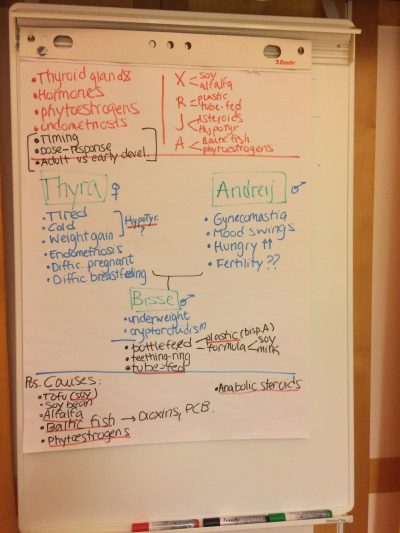 Esselte
• Thyroid glands
• Hormones
• phytoestrogens
• endometriosis
• Timing
• Dose-response
• Adult vs early devel.
X < soy
alfalfa
R < plastic
tube-fed
J < Asteroids
Hypotyr
A < Baltic fish
phytoestrogens
Thyra ♀
• Tired
• Cold
• Weight gain
Hypotyr. ?
• Endometriosis
• Diffic. pregnant
• Diffic breastfeeding
Andreij ♂
• Gynecomastia
• Mood swings
• Hungry ↑↑
• Fertility ??
Bisse ♂
• underweight
• cryptorchidism
• bottlefeed - plastic (bisp.A)
- formula < soy
milk
• teething-ring
• tube-fed
Pos. Causes:
• Tofu (soy)
• Soybean
• Alfalfa
• Baltic fish → Dioxins, PCB.
• Phytoestrogens
• Anabolic steroids